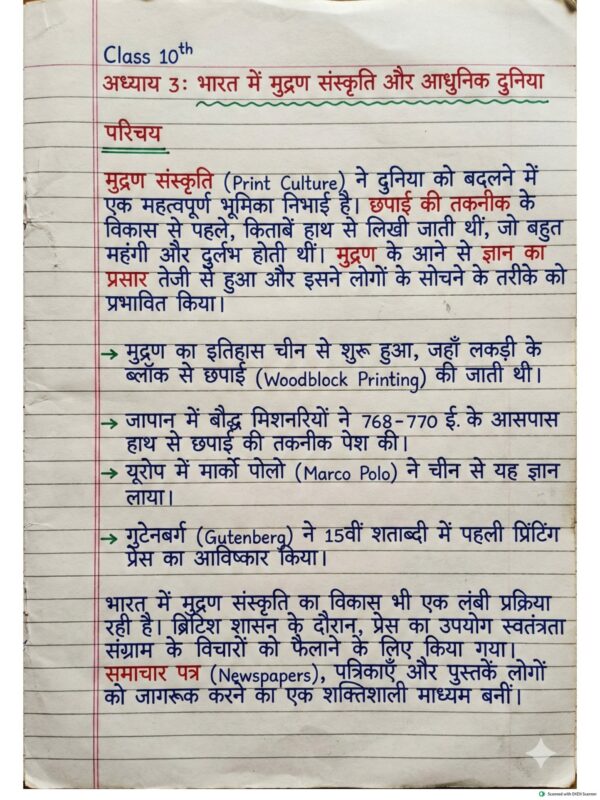 Class 10th
अध्याय 3: भारत में मुद्रण संस्कृति और आधुनिक दुनिया
परिचय
मुद्रण संस्कृति (Print Culture) ने दुनिया को बदलने में
एक महत्वपूर्ण भूमिका निभाई है। छपाई की तकनीक के
विकास से पहले, किताबें हाथ से लिखी जाती थीं, जो बहुत
महंगी और दुर्लभ होती थीं। मुद्रण के आने से ज्ञान का
प्रसार तेजी से हुआ और इसने लोगों के सोचने के तरीके को
प्रभावित किया।
→ मुद्रण का इतिहास चीन से शुरू हुआ, जहाँ लकड़ी के
ब्लॉक से छपाई (Woodblock Printing) की जाती थी।
→ जापान में बौद्ध मिशनरियों ने 768-770 ई. के आसपास
हाथ से छपाई की तकनीक पेश की।
→ यूरोप में मार्को पोलो (Marco Polo) ने चीन से यह ज्ञान
लाया।
→ गुटेनबर्ग (Gutenberg) ने 15वीं शताब्दी में पहली प्रिंटिंग
प्रेस का आविष्कार किया।
भारत में मुद्रण संस्कृति का विकास भी एक लंबी प्रक्रिया
रही है। ब्रिटिश शासन के दौरान, प्रेस का उपयोग स्वतंत्रता
संग्राम के विचारों को फैलाने के लिए किया गया।
समाचार पत्र (Newspapers), पत्रिकाएँ और पुस्तकें लोगों
को जागरूक करने का एक शक्तिशाली माध्यम बनीं।
Scanned with OKEN Scanner